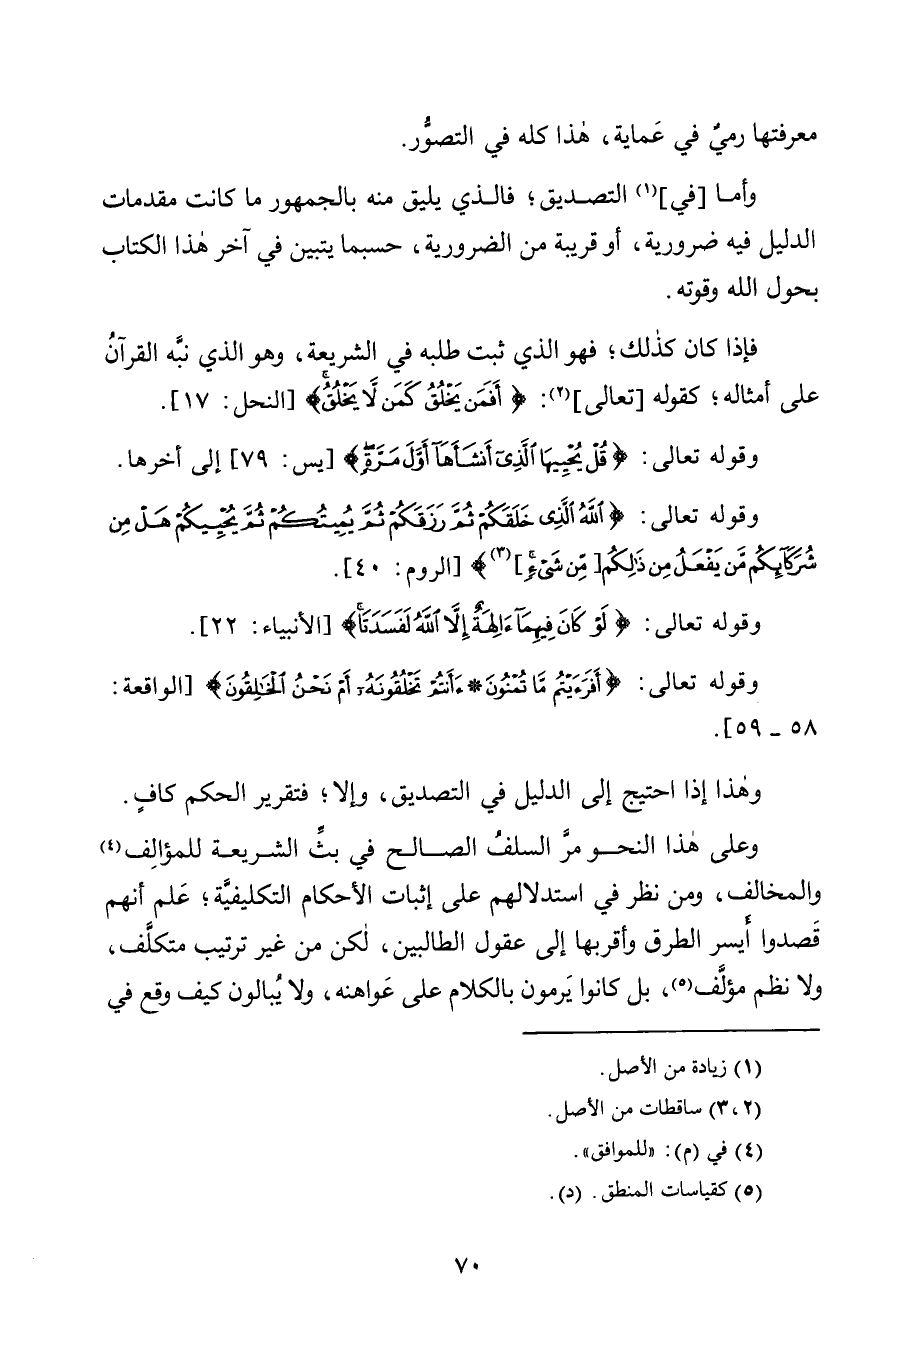 معرفتها رميٌ في عَماية، هٰذا كله في التصوُّر.
وأما [في]⁽¹⁾ التصديق؛ فالذي يليق منه بالجمهور ما كانت مقدمات
الدليل فيه ضرورية، أو قريبة من الضرورية، حسبما يتبين في آخر هٰذا الكتاب
بحول الله وقوته.
فإذا كان كذٰلك؛ فهو الذي ثبت طلبه في الشريعة، وهو الذي نبَّه القرآنُ
على أمثاله؛ كقوله [تعالى]⁽²⁾: ﴿أَفَمَن يَخْلُقُ كَمَن لَّا يَخْلُقُۗ﴾ [النحل: ١٧].
وقوله تعالى: ﴿قُلْ يُحْيِيهَا ٱلَّذِىٓ أَنشَأَهَآ أَوَّلَ مَرَّةٍۖ﴾ [يس: ٧٩] إلى أخرها.
وقوله تعالى: ﴿ٱللَّهُ ٱلَّذِى خَلَقَكُمْ ثُمَّ رَزَقَكُمْ ثُمَّ يُمِيتُكُمْ ثُمَّ يُحْيِيكُمْ هَلْ مِن
شُرَكَآئِكُم مَّن يَفْعَلُ مِن ذَٰلِكُم [مِّن شَىْءٍۚ]⁽³⁾﴾ [الروم: ٤٠].
وقوله تعالى: ﴿لَوْ كَانَ فِيهِمَآ ءَالِهَةٌ إِلَّا ٱللَّهُ لَفَسَدَتَاۚ﴾ [الأنبياء: ٢٢].
وقوله تعالى: ﴿أَفَرَءَيْتُم مَّا تُمْنُونَ * ءَأَنتُمْ تَخْلُقُونَهُۥٓ أَمْ نَحْنُ ٱلْخَٰلِقُونَ﴾ [الواقعة:
٥٨ ـ ٥٩].
وهٰذا إذا احتيج إلى الدليل في التصديق، وإلا؛ فتقرير الحكم كافٍ.
وعلى هٰذا النحو مرَّ السلفُ الصالح في بثِّ الشريعة للمؤالِف⁽⁴⁾
والمخالف، ومن نظر في استدلالهم على إثبات الأحكام التكليفيَّة؛ عَلم أنهم
قَصدوا أيسر الطرق وأقربها إلى عقول الطالبين، لٰكن من غير ترتيب متكلَّف،
ولا نظم مؤلَّف⁽⁵⁾، بل كانوا يَرمون بالكلام على عَواهنه، ولا يُبالون كيف وقع في
(١) زيادة من الأصل.
(٢، ٣) ساقطات من الأصل.
(٤) في (م): «للموافق».
(٥) كقياسات المنطق. (د).
٧٠